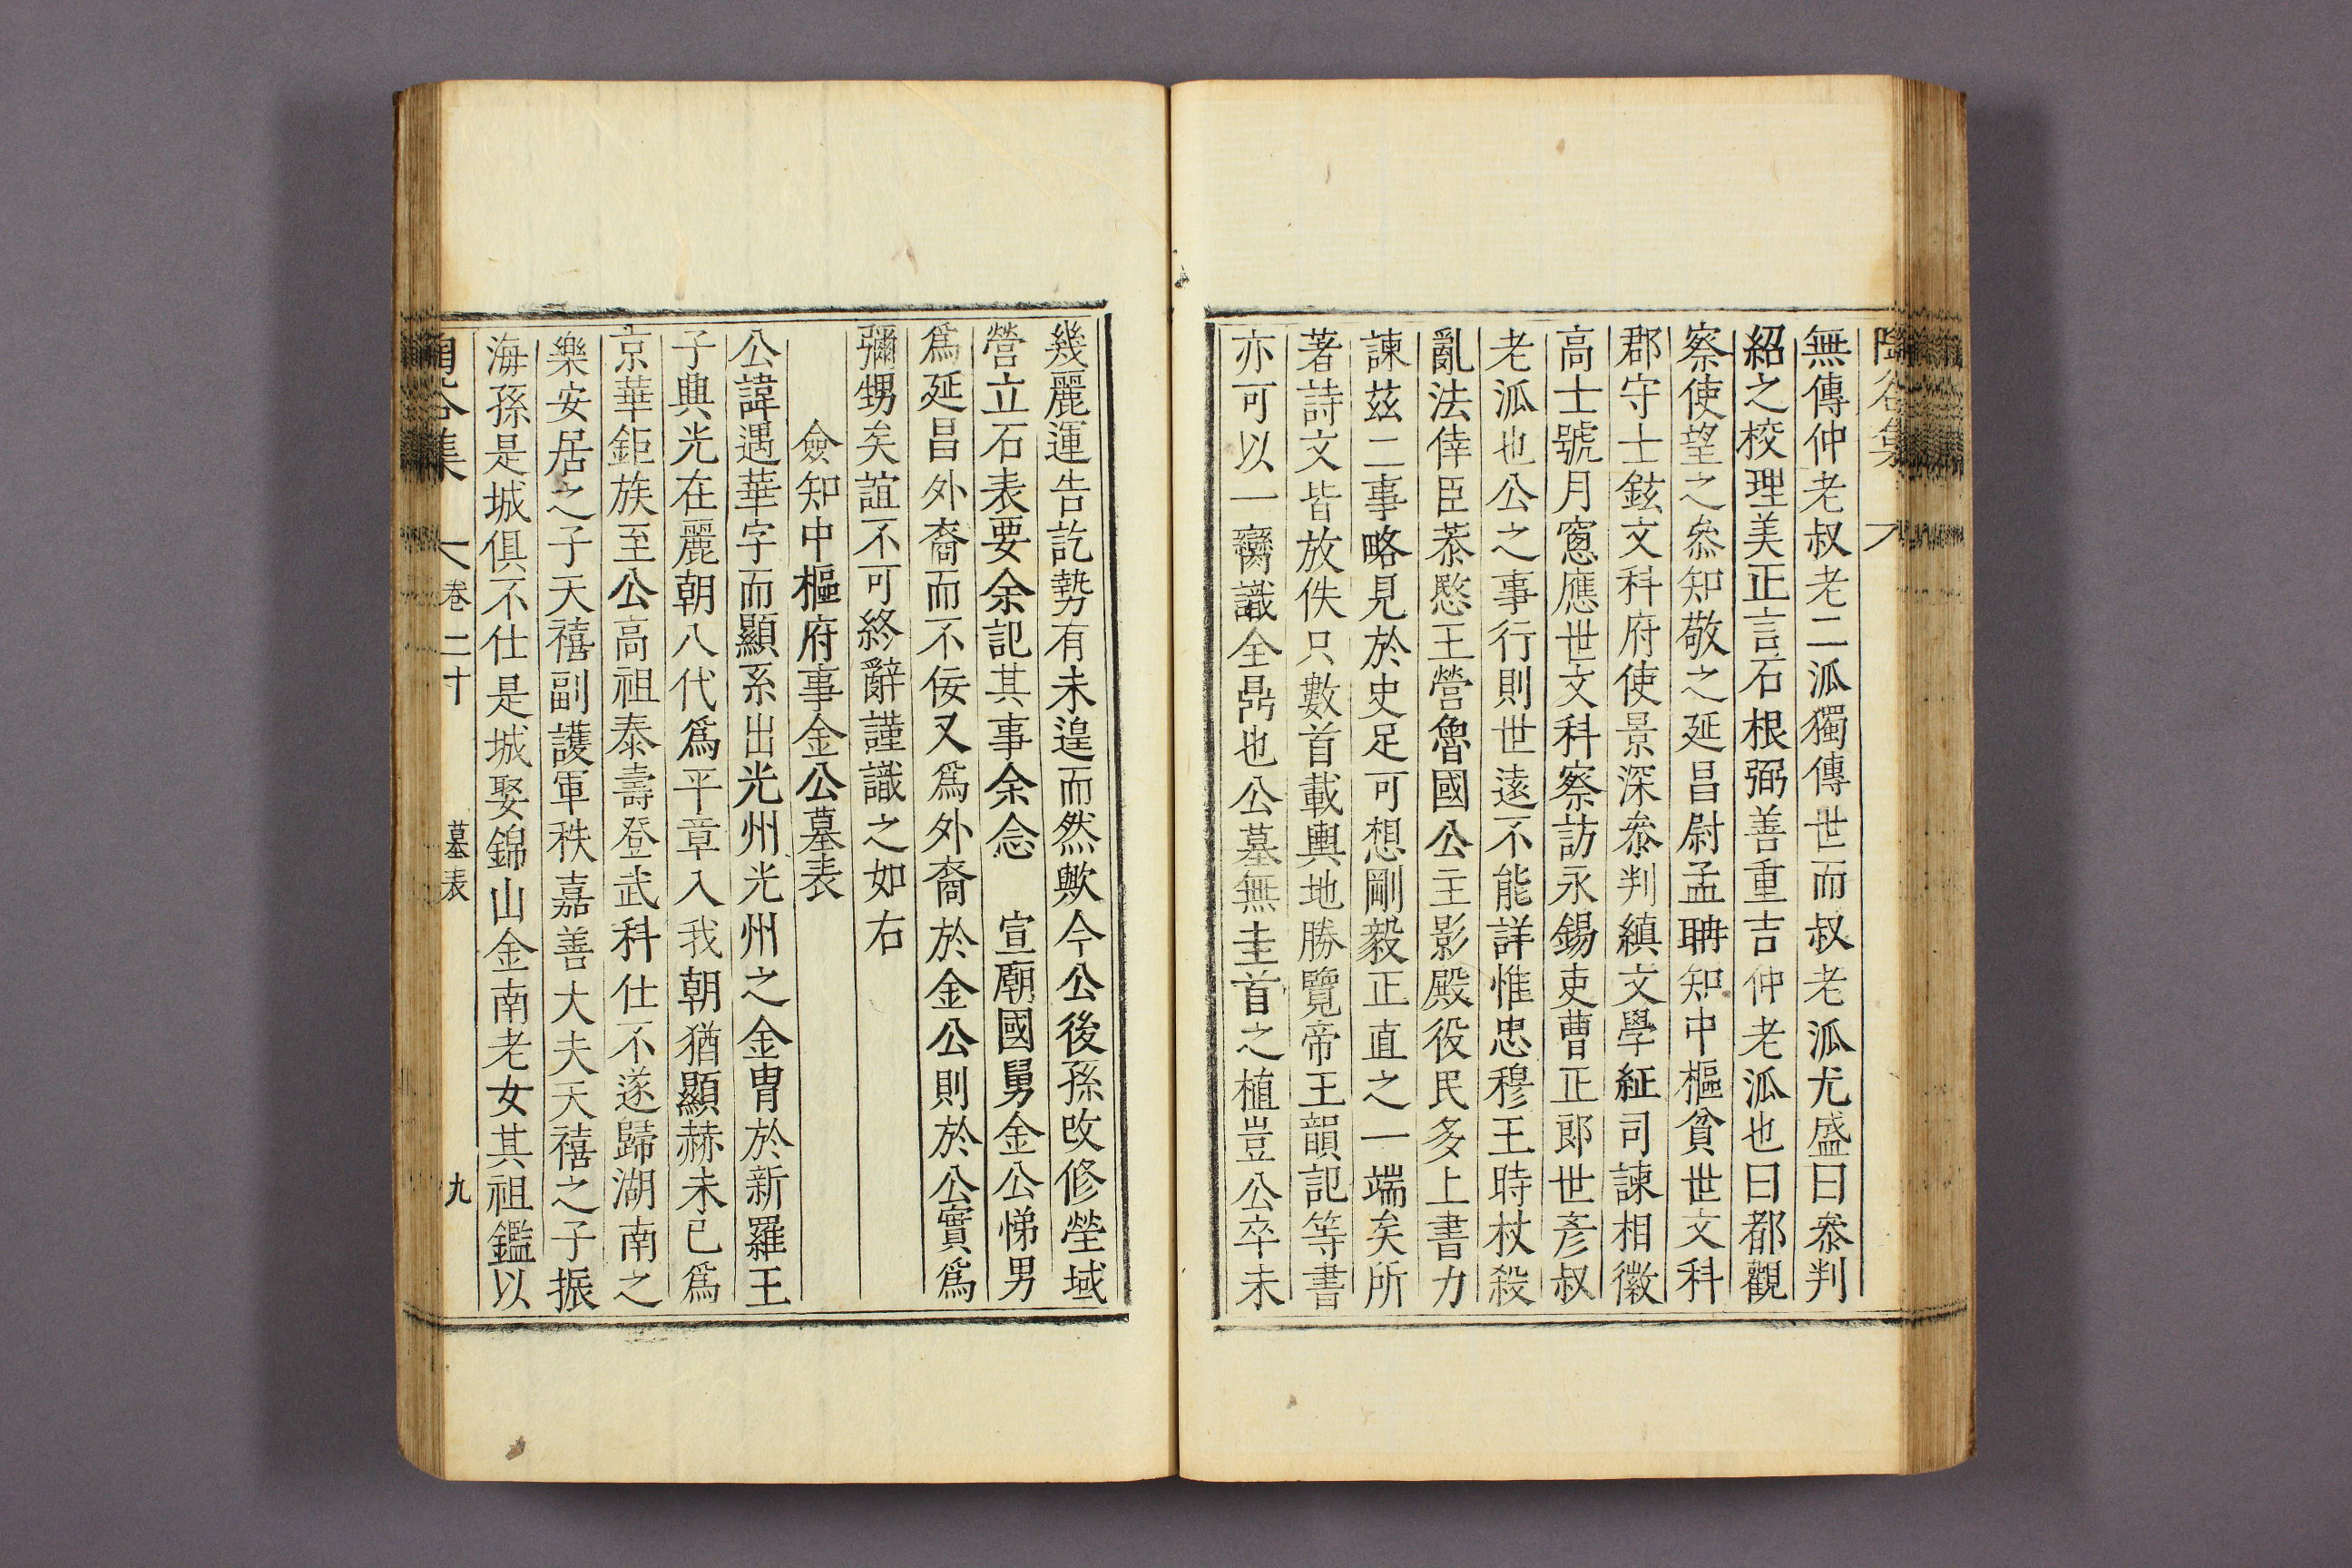 無傳仲老叔老二派獨傳世而叔老派尤盛曰叅判
紹之校理美正言石根弼善重吉仲老派也曰都觀
察使望之叅知敬之延昌尉孟聃知中樞貧世文科
郡守士鉉文科府使景深叅判縝文學紝司諫相徽
高士號月窻應世文科察訪永錫吏曹正郎世彥叔
老派也公之事行則世遠不能詳惟忠穆王時杖殺
亂法倖臣恭愍王營魯國公主影殿役民多上書力
諫茲二事略見於史足可想剛毅正直之一端矣所
著詩文皆放佚只數首載輿地勝覽帝王韻記等書
亦可以一臠識全鼎也公墓無圭首之植豈公卒未
幾麗運告訖勢有未遑而然歟今公後孫改修塋域
營立石表要余記其事余念 宣廟國舅金公悌男
爲延昌外裔而不佞又爲外裔於金公則於公實爲
彌甥矣誼不可終辭謹識之如右
僉知中樞府事金公墓表
公諱遇華字而顯系出光州光州之金冑於新羅王
子興光在麗朝八代爲平章入我朝猶顯赫未已爲
京華鉅族至公高祖泰壽登武科仕不遂歸湖南之
樂安居之子天禧副護軍秩嘉善大夫天禧之子振
海孫是城俱不仕是城娶錦山金南老女其祖鑑以
谷集 卷二十 墓表 九